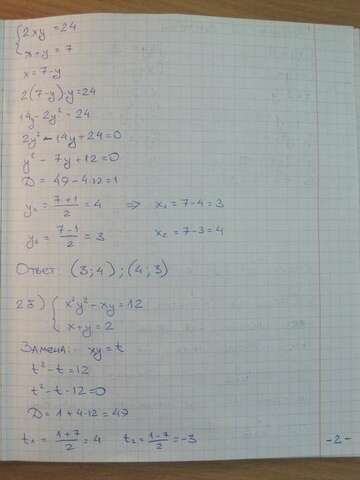 {2xy = 24
x+y = 7
x = 7-y
2(7-y)·y=24
14y-2y²=24
2y²-14y+24=0
y²-7y+12=0
D = 49-4·12=1
y₁ = (7+1)/2 = 4 ⇒ x₁ = 7-4=3
y₂ = (7-1)/2 = 3 x₂ = 7-3=4
Ответ: (3;4);(4;3)
2б) {x²y²-xy=12
x+y=2
Замена: xy=t
t²-t=12
t²-t-12=0
D=1+4·12=49
t₁ = (1+7)/2 = 4 t₂ = (1-7)/2 = -3
-2-